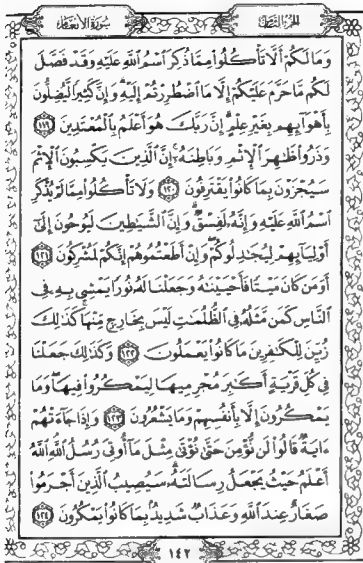 الجزء الثامن
سورة الأنعام
وَمَا لَكُمْ أَلَّا تَأْكُلُوا۟ مِمَّا ذُكِرَ ٱسْمُ ٱللَّهِ عَلَيْهِ وَقَدْ فَصَّلَ
لَكُم مَّا حَرَّمَ عَلَيْكُمْ إِلَّا مَا ٱضْطُرِرْتُمْ إِلَيْهِ ۗ وَإِنَّ كَثِيرًا لَّيُضِلُّونَ
بِأَهْوَآئِهِم بِغَيْرِ عِلْمٍ ۗ إِنَّ رَبَّكَ هُوَ أَعْلَمُ بِٱلْمُعْتَدِينَ ١١٩
وَذَرُوا۟ ظَـٰهِرَ ٱلْإِثْمِ وَبَاطِنَهُۥٓ ۚ إِنَّ ٱلَّذِينَ يَكْسِبُونَ ٱلْإِثْمَ
سَيُجْزَوْنَ بِمَا كَانُوا۟ يَقْتَرِفُونَ ١٢٠ وَلَا تَأْكُلُوا۟ مِمَّا لَمْ يُذْكَرِ
ٱسْمُ ٱللَّهِ عَلَيْهِ وَإِنَّهُۥ لَفِسْقٌ ۗ وَإِنَّ ٱلشَّيَـٰطِينَ لَيُوحُونَ إِلَىٰٓ
أَوْلِيَآئِهِمْ لِيُجَـٰدِلُوكُمْ ۖ وَإِنْ أَطَعْتُمُوهُمْ إِنَّكُمْ لَمُشْرِكُونَ ١٢١
أَوَمَن كَانَ مَيْتًا فَأَحْيَيْنَـٰهُ وَجَعَلْنَا لَهُۥ نُورًا يَمْشِى بِهِۦ فِى
ٱلنَّاسِ كَمَن مَّثَلُهُۥ فِى ٱلظُّلُمَـٰتِ لَيْسَ بِخَارِجٍ مِّنْهَا ۚ كَذَٰلِكَ
زُيِّنَ لِلْكَـٰفِرِينَ مَا كَانُوا۟ يَعْمَلُونَ ١٢٢ وَكَذَٰلِكَ جَعَلْنَا
فِى كُلِّ قَرْيَةٍ أَكَـٰبِرَ مُجْرِمِيهَا لِيَمْكُرُوا۟ فِيهَا ۖ وَمَا
يَمْكُرُونَ إِلَّا بِأَنفُسِهِمْ وَمَا يَشْعُرُونَ ١٢٣ وَإِذَا جَآءَتْهُمْ
ءَايَةٌ قَالُوا۟ لَن نُّؤْمِنَ حَتَّىٰ نُؤْتَىٰ مِثْلَ مَآ أُوتِىَ رُسُلُ ٱللَّهِ ۘ ٱللَّهُ
أَعْلَمُ حَيْثُ يَجْعَلُ رِسَالَتَهُۥ ۗ سَيُصِيبُ ٱلَّذِينَ أَجْرَمُوا۟
صَغَارٌ عِندَ ٱللَّهِ وَعَذَابٌ شَدِيدٌۢ بِمَا كَانُوا۟ يَمْكُرُونَ ١٢٤
١٤٢